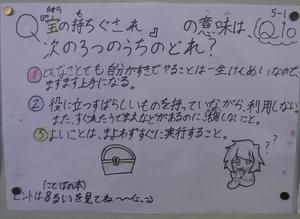 5-1
たから
Q『宝の持ちぐされ』の意味は、 Q10
次の3つのうちのどれ？
① どんなことでも自分がすきでやることは一生けんめいなので、
ますます上手になる。
② 役に立つすばらしいものを持っていながら、利用しない。
また、すぐれたうでまえなどがあるのに、活用しないこと。
③ よいことは、まよわずすぐに実行すること。
(ことばの本)
ヒントは8るいを見てね〜
? ?